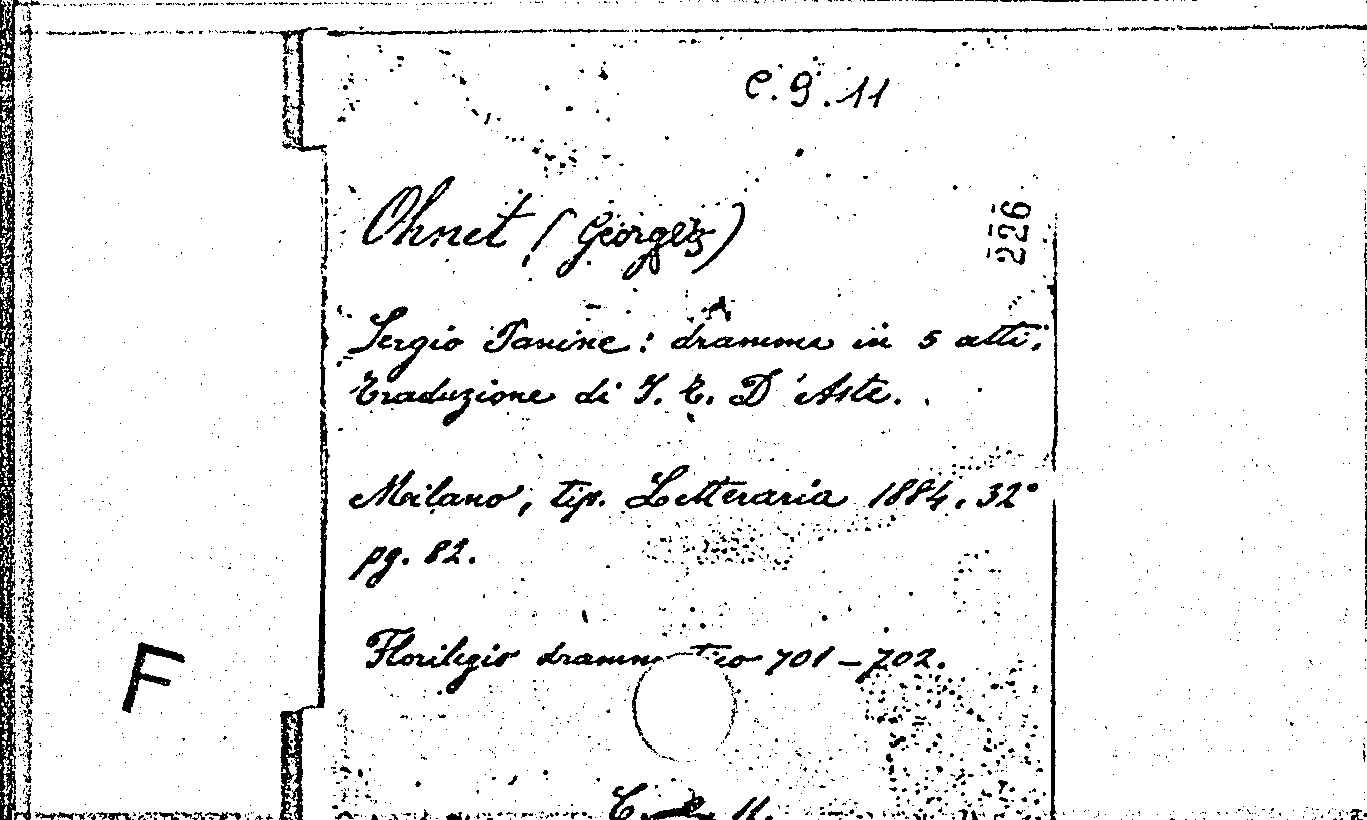 C. 9. 11
226
Ohnet (Georges)
Sergio Panine: dramma in 5 atti.
Traduzione di I. T. D'Aste.
Milano, tip. Letteraria 1884. 32°
pg. 82.
Florilegio drammatico 701-702.
F